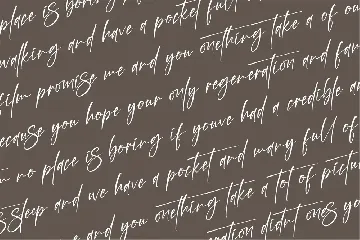 place is boring if
walking and have a pocket full
film promise me and you onething take a of
because you hope your only regeneration and
no place is boring if youve had a credible
asleep and we have a pocket and many full of
and you onething take a lot of
didnt ones